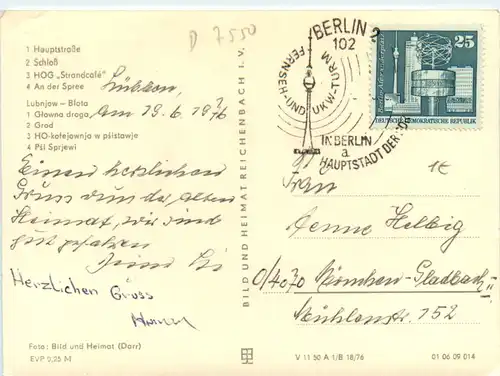 D 7550
1 Hauptstraße
2 Schloß
3 HOG „Strandcafé"
4 An der Spree
Lubnjow - Błota
1 Głowna droga
2 Grod
3 HO-kofejownja w pśistawje
4 Pśi Sprjewi
Lübben,
am 19.6.1976
Einen herzlichen
Gruss von der alten
Heimat, wir sind
gut gefahren
Herzlichen Gruss
Foto: Bild und Heimat (Darr)
EVP 0,25 M
BILD UND HEIMAT REICHENBACH I. V.
BERLIN 2
102
FERNSEH-UND UKW-TURM
IN BERLIN
HAUPTSTADT DER DDR
a
25
Berlin-Alexanderplatz
DEUTSCHE DEMOKRATISCHE REPUBLIK
1€
Frau
Aenne Helbig
0/4070 München-Gladbach II
Mühlenstr. 152
V 11 50 A 1/B 18/76
01 06 09 014